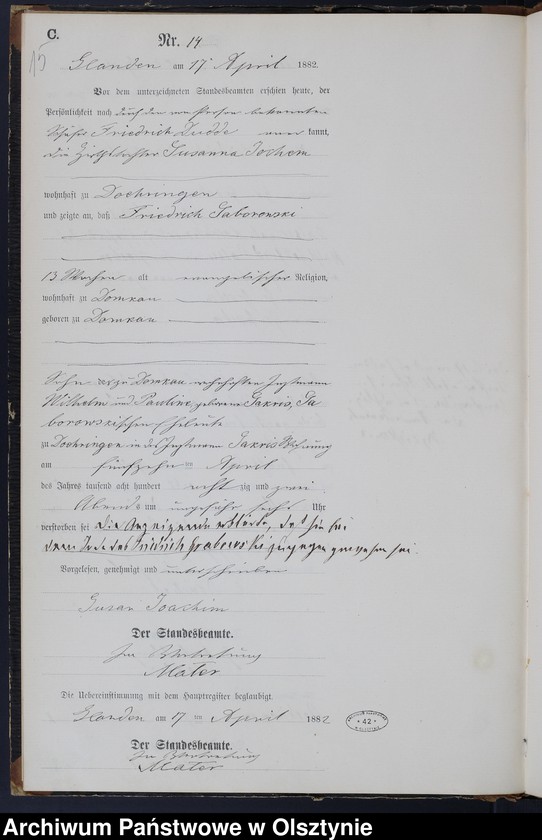 C.
15
Nr. 14
Glanden am 17. April 1882.
Vor dem unterzeichneten Standesbeamten erschien heute, der
Persönlichkeit nach durch den von Person bekannten
Schäfer Friedrich Dudde anerkannt,
die Hirthstochter Susanna Jochem
wohnhaft zu Doehringen
und zeigte an, daß Friedrich Saborowski
13 Wochen alt evangelischer Religion,
wohnhaft zu Domkau
geboren zu Domkau
Sohn der zu Domkau wohnhaften Instmann
Wilhelm und Pauline, geborene Sakris, Sa
borowskischen Eheleute
zu Doehringen in des Instmann Sakris Wohnung
am fünfzehn ten April
des Jahres tausend acht hundert acht zig und zwei
Abends um ungefähr sechs Uhr
verstorben sei die Anzeigende erklärte, daß sie bei
dem Tode des Friedrich Grabowski zugegen gewesen sei.
Vorgelesen, genehmigt und unterschrieben
Susan Joachim
Der Standesbeamte.
In Vertretung
Mater
Die Uebereinstimmung mit dem Hauptregister beglaubigt.
Glanden am 17 ten April 1882
Der Standesbeamte.
In Vertretung
Mater
42
Archiwum Państwowe w Olsztynie